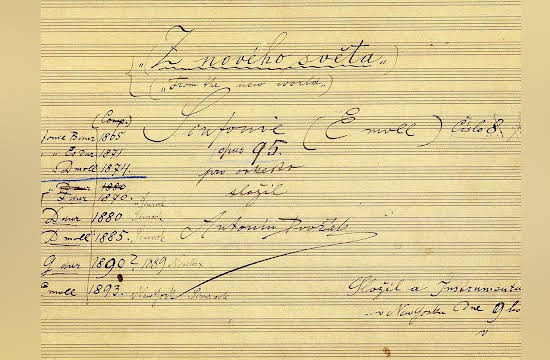 „Z nového světa“
(„From the new world“)
Sinfonie (E moll) Číslo 8.
opus 95.
pro orkestr
složil
Antonín Dvořák
(Comp.)
B dur 1865
" Es dur 1871
D moll 1874.
" D dur 1880
F dur 1870.
D dur 1880 Simrock
D moll 1885. Simrock
G dur 1890? 1889 Novello
E moll 1893. New York Simrock
Složil a Instrumento
v New Yorku Dne 9